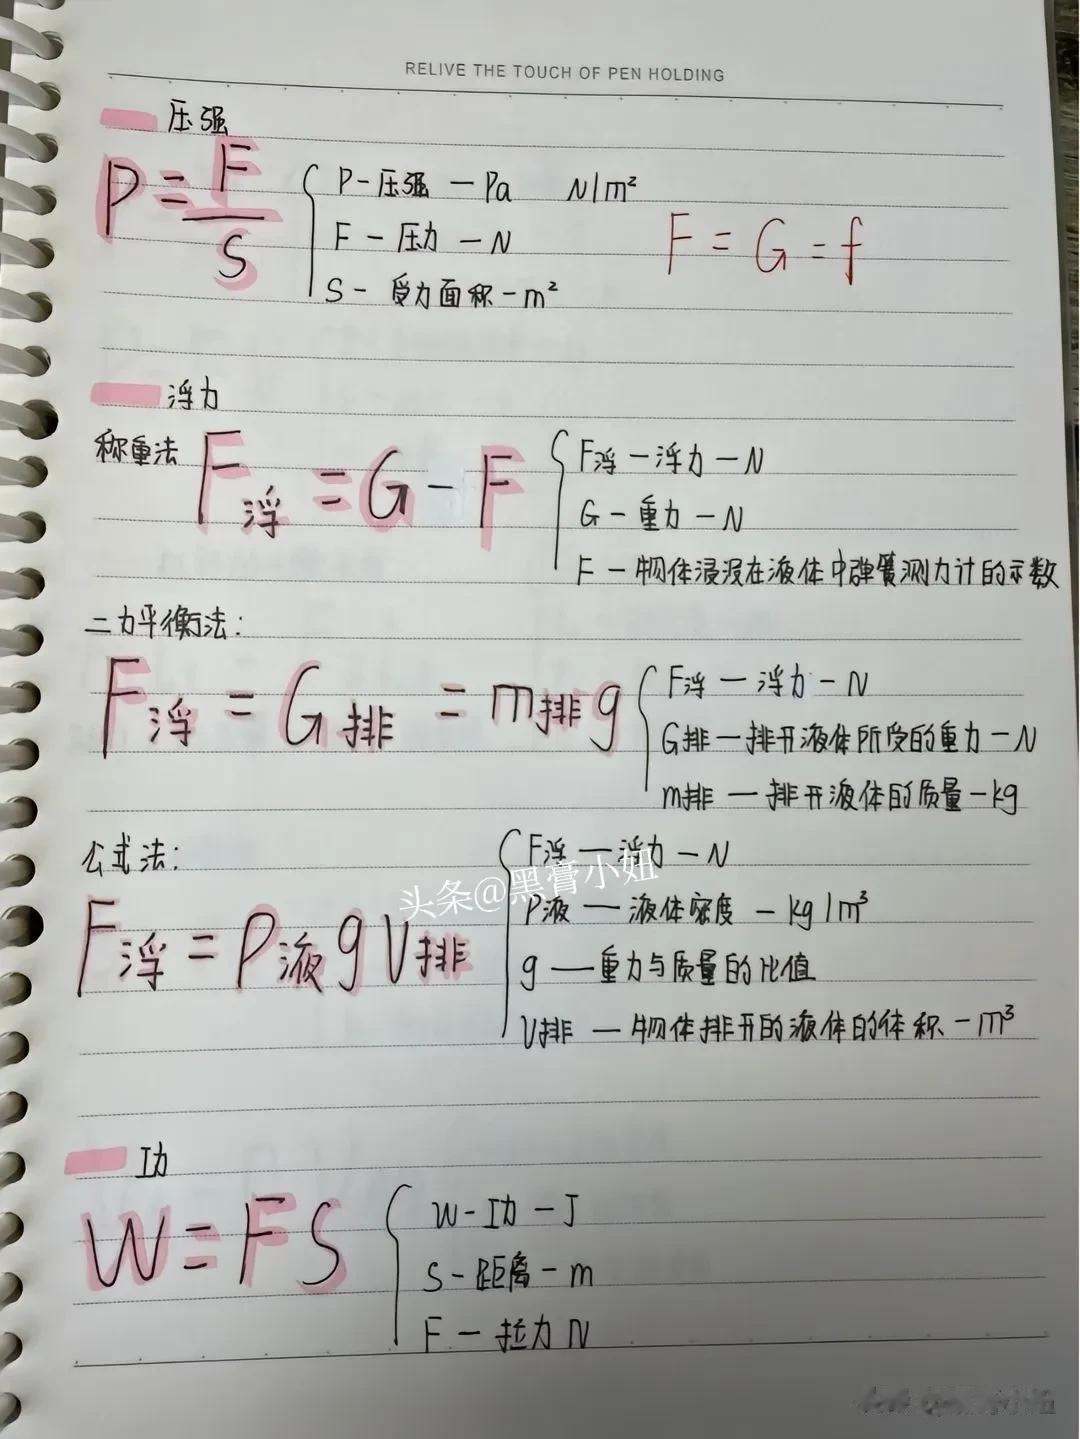 RELIVE THE TOUCH OF PEN HOLDING
压强
P=F/S
P-压强-Pa N/m²
F-压力-N
S-受力面积-m²
F=G=f
浮力
称重法 F浮=G-F
F浮-浮力-N
G-重力-N
F-物体浸没在液体中弹簧测力计的示数
二力平衡法:
F浮=G排=m排g
F浮-浮力-N
G排-排开液体所受的重力-N
m排-排开液体的质量-kg
公式法:
F浮=ρ液gV排
F浮-浮力-N
ρ液-液体密度-kg/m³
g-重力与质量的比值
V排-物体排开的液体的体积-m³
头条@黑膏小妞
功
W=FS
W-功-J
S-距离-m
F-拉力 N